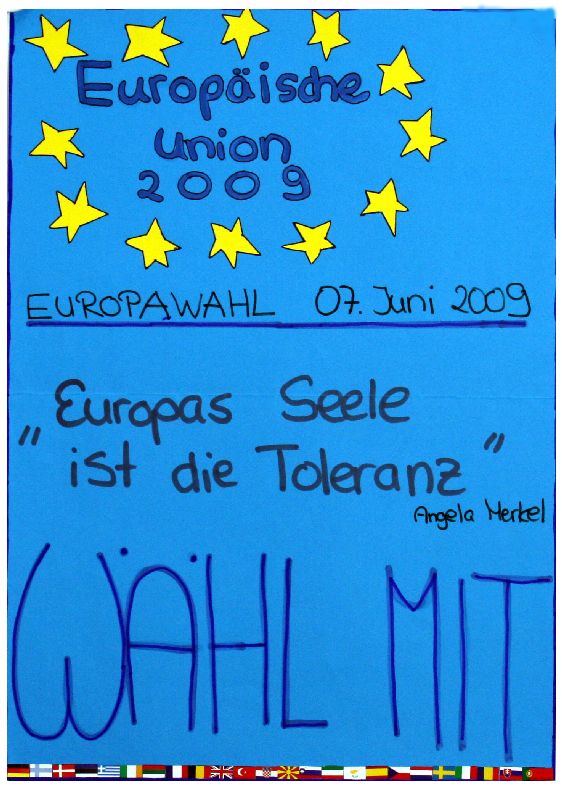 Europäische
Union
2009
EUROPAWAHL 07. Juni 2009
„Europas Seele
ist die Toleranz"
Angela Merkel
WÄHL MIT